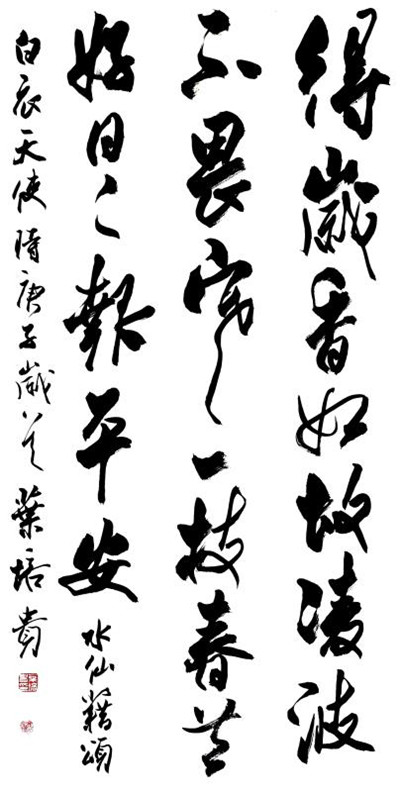 得歲香如故凌波
不畏寒一枝春
好日〻報平安 水仙藉頌
白衣天使時庚子歲 葉培貴